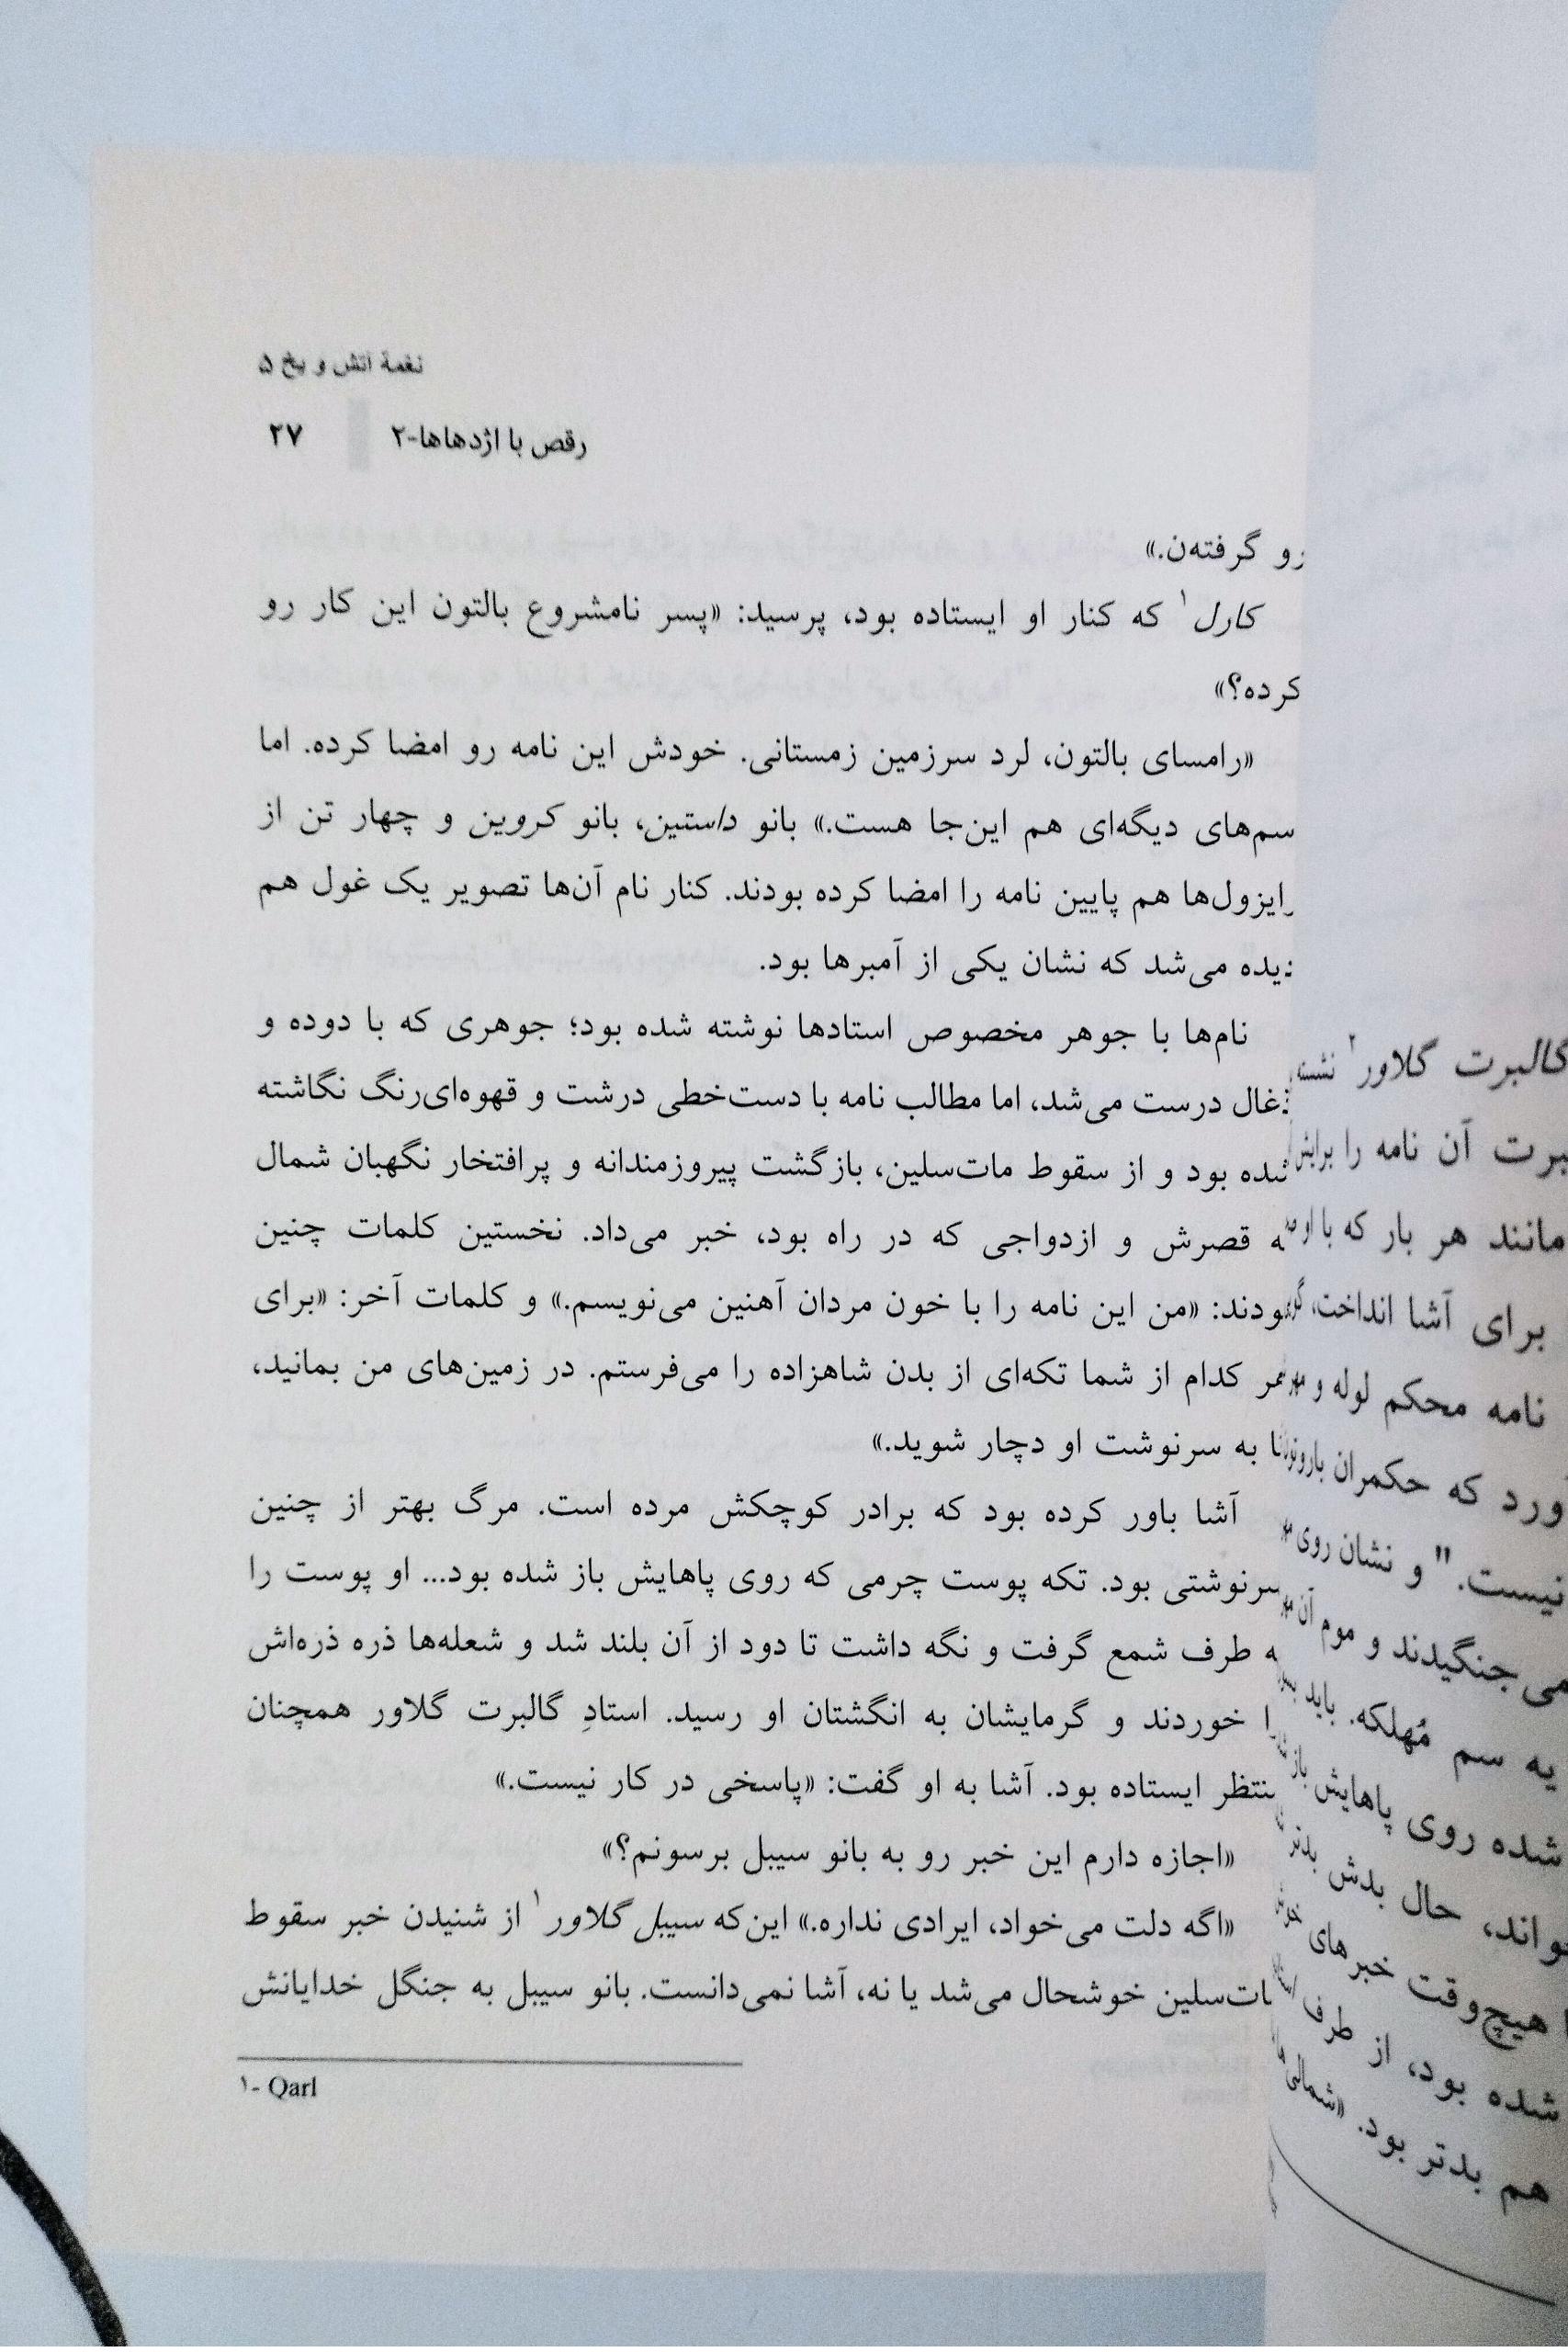 نغمهٔ آتش و یخ ۵
رقص با اژدهاها-۲ ۲۷
رو گرفته‌ن.»
کارل۱ که کنار او ایستاده بود، پرسید: «پسر نامشروع بالتون این کار رو
کرده؟»
«رامسای بالتون، لرد سرزمین زمستانی. خودش این نامه رو امضا کرده. اما
دیگه‌ای هم این‌جا هست.» بانو داستین، بانو کروین و چهار تن از
هم پایین نامه را امضا کرده بودند. کنار نام آن‌ها تصویر یک غول هم
می‌شد که نشان یکی از آمبرها بود.
نام‌ها با جوهر مخصوص استادها نوشته شده بود؛ جوهری که با دوده و
درست می‌شد، اما مطالب نامه با دست‌خطی درشت و قهوه‌ای‌رنگ نگاشته
شده بود و از سقوط مات‌سلین، بازگشت پیروزمندانه و پرافتخار نگهبان شمال
قصرش و ازدواجی که در راه بود، خبر می‌داد. نخستین کلمات چنین
«من این نامه را با خون مردان آهنین می‌نویسم.» و کلمات آخر: «برای
کدام از شما تکه‌ای از بدن شاهزاده را می‌فرستم. در زمین‌های من بمانید،
به سرنوشت او دچار شوید.»
آشا باور کرده بود که برادر کوچکش مرده است. مرگ بهتر از چنین
سرنوشتی بود. تکه پوست چرمی که روی پاهایش باز شده بود... او پوست را
طرف شمع گرفت و نگه داشت تا دود از آن بلند شد و شعله‌ها ذره ذره‌اش
خوردند و گرمایشان به انگشتان او رسید. استادِ گالبرت گلاور همچنان
منتظر ایستاده بود. آشا به او گفت: «پاسخی در کار نیست.»
«اجازه دارم این خبر رو به بانو سیبل برسونم؟»
«اگه دلت می‌خواد، ایرادی نداره.» این‌که سیبل گلاور۱ از شنیدن خبر سقوط
خوشحال می‌شد یا نه، آشا نمی‌دانست. بانو سیبل به جنگل خدایانش
۱- Qarl
گالبرت گلاور۲ نشسته
آن نامه را برایش
مانند هر بار که با او
برای آشا انداخت،
نامه محکم لوله و
که حکمران
نیست." و نشان روی
می‌جنگیدند و موم آن
یه سم مُهلکه. باید
شده روی پاهایش باز
حال بدش بدتر
هیچ‌وقت خبرهای
شده بود، از طرف
هم بدتر بود. «شمالی